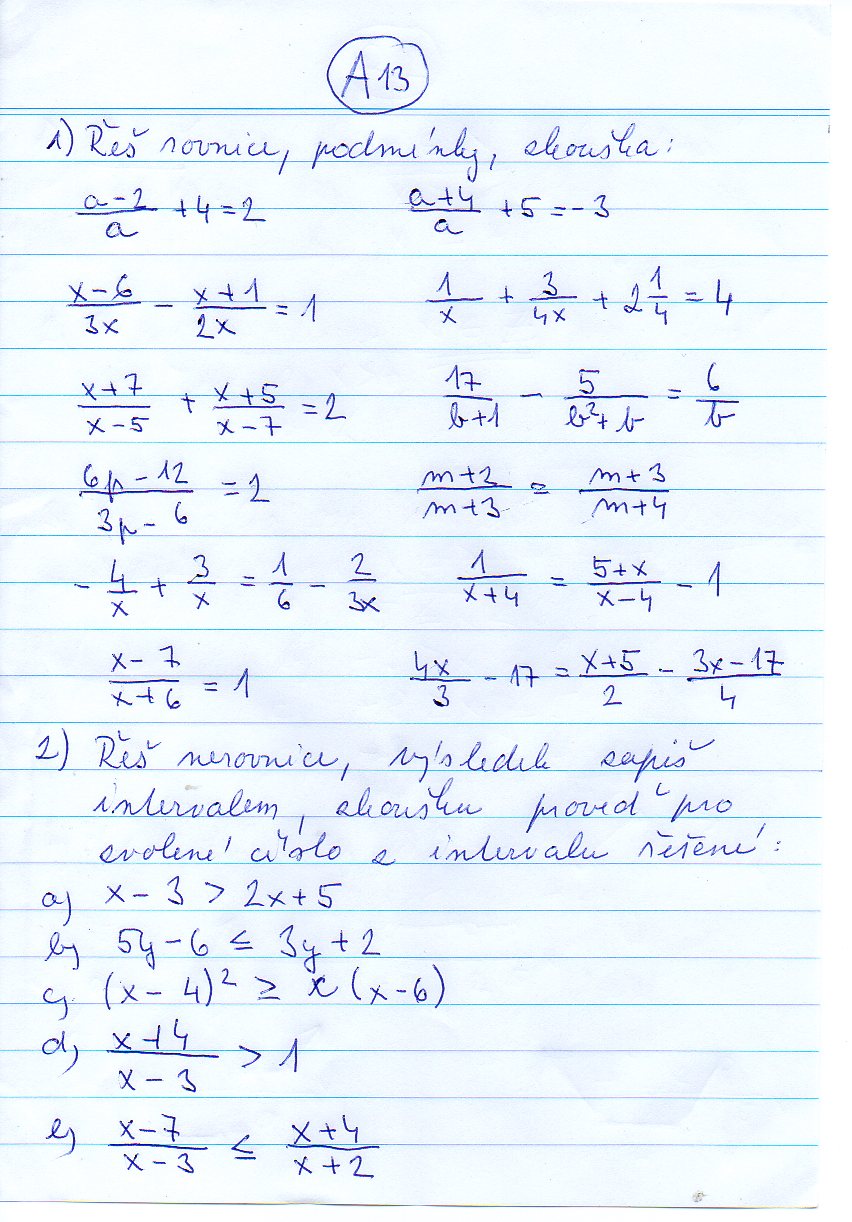 A13
1) Řeš rovnice, podmínky, zkouška:
(a-2)/a + 4 = 2    (a+4)/a + 5 = -3
(x-6)/3x - (x+1)/2x = 1    1/x + 3/4x + 2 1/4 = 4
(x+7)/(x-5) + (x+5)/(x-7) = 2    17/(b+1) - 5/(b²+b) = 6/b
(6p-12)/(3p-6) = 2    (m+2)/(m+3) = (m+3)/(m+4)
-4/x + 3/x = 1/6 - 2/3x    1/(x+4) = (5+x)/(x-4) - 1
(x-7)/(x+6) = 1    4x/3 - 17 = (x+5)/2 - (3x-17)/4
2) Řeš nerovnice, výsledek zapiš
intervalem, zkoušku proveď pro
zvolené číslo z intervalu řešení:
a) x - 3 > 2x + 5
b) 5y - 6 ≤ 3y + 2
c) (x - 4)² ≥ x (x - 6)
d) (x+4)/(x-3) > 1
e) (x-7)/(x-3) ≤ (x+4)/(x+2)